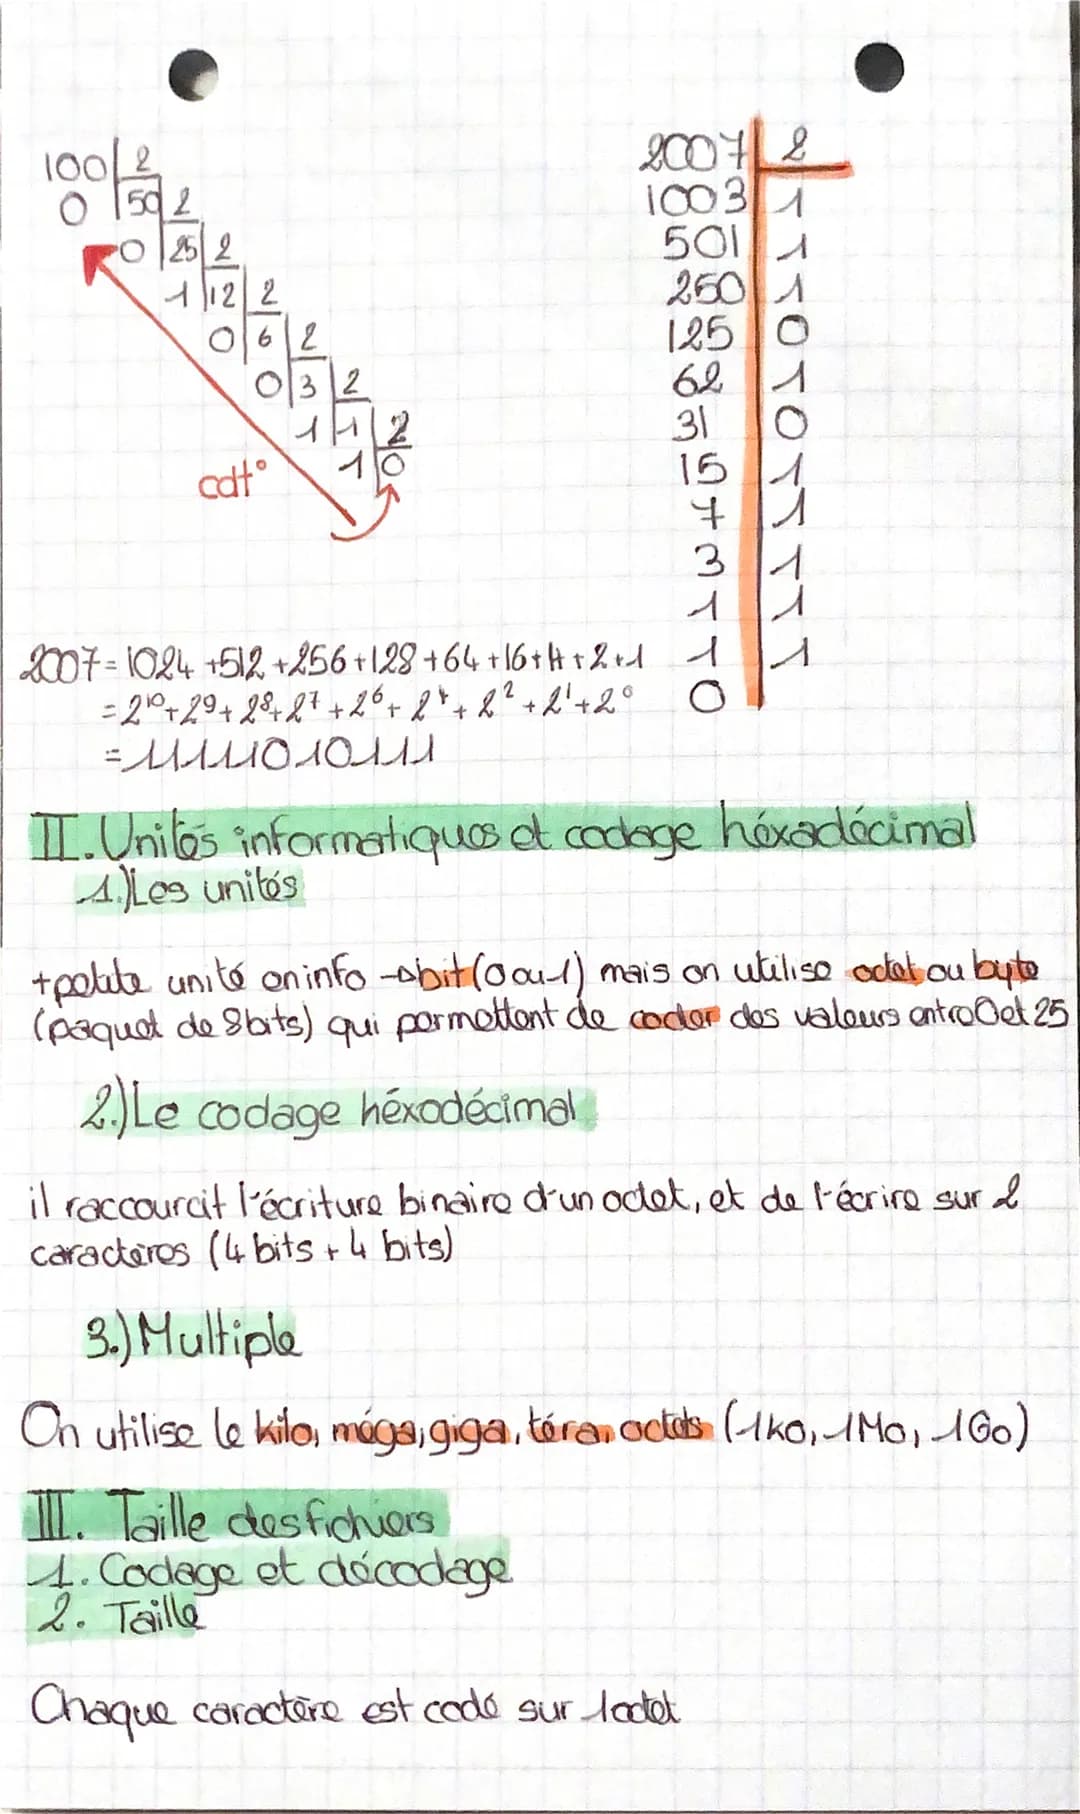 100 2
0 50 2
0 25 2
1 12 2
0 6 2
0 3 2
1 1 2
1 0
cdt°
2007 2
1003 1
501 1
250 1
125 0
62 1
31 0
15 1
7 1
3 1
1 1
1 1
0
2007 = 1024 + 512 + 256 + 128 + 64 + 16 + 4 + 2 + 1
= 2¹⁰ + 2⁹ + 2⁸ + 2⁷ + 2⁶ + 2⁴ + 2² + 2¹ + 2⁰
= 11111010111
II. Unités informatiques et codage héxadécimal
1.) Les unités
+ petite unité en info → bit (0 ou 1) mais on utilise octet ou byte
(paquet de 8 bits) qui permettent de coder des valeurs entre 0 et 25
2.) Le codage héxodécimal
il raccourcit l'écriture binaire d'un octet, et de l'écrire sur 2
caractères (4 bits + 4 bits)
3.) Multiple
On utilise le kilo, méga, giga, téra, octets (1ko, 1Mo, 1Go)
III. Taille des fichiers
1. Codage et décodage
2. Taille
Chaque caractère est codé sur 1 octet